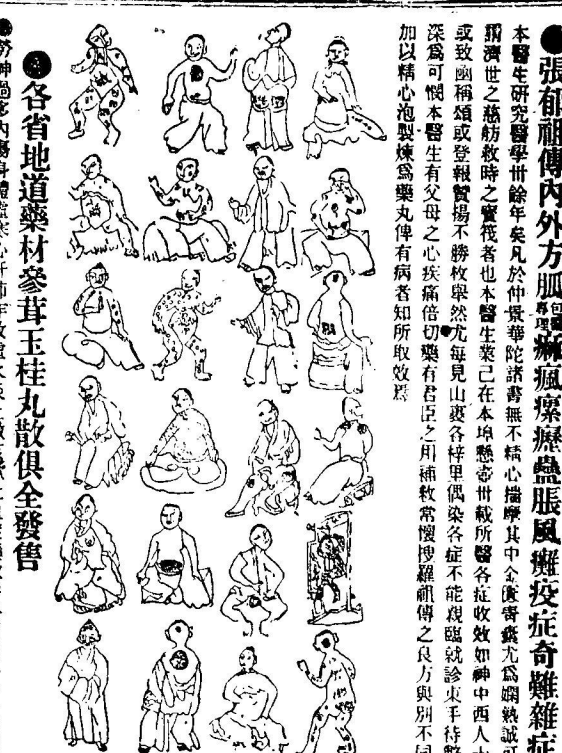 ●張郁祖傳內外方脈包醫專理痳瘋瘰癧蠱脹風癱疫症奇難雜症
本醫生研究醫學卅餘年矣凡於仲景華陀諸書無不精心揣摩其中金匱奇藏尤爲嫻熟誠
謂濟世之慈舫救時之寶筏者也本醫生業已在本埠懸壺卅載所醫各症收效如神中西人
或致函稱頌或登報贊揚不勝枚舉然尤每見山裏各梓里偶染各症不能親臨就診束手待
深爲可憫本醫生有父母之心疾痛倍切藥有君臣之用補救常懷搜羅祖傳之良方與別不同
加以精心泡製煉爲藥丸俾有病者知所取效焉
●各省地道藥材參茸玉桂丸散俱全發售